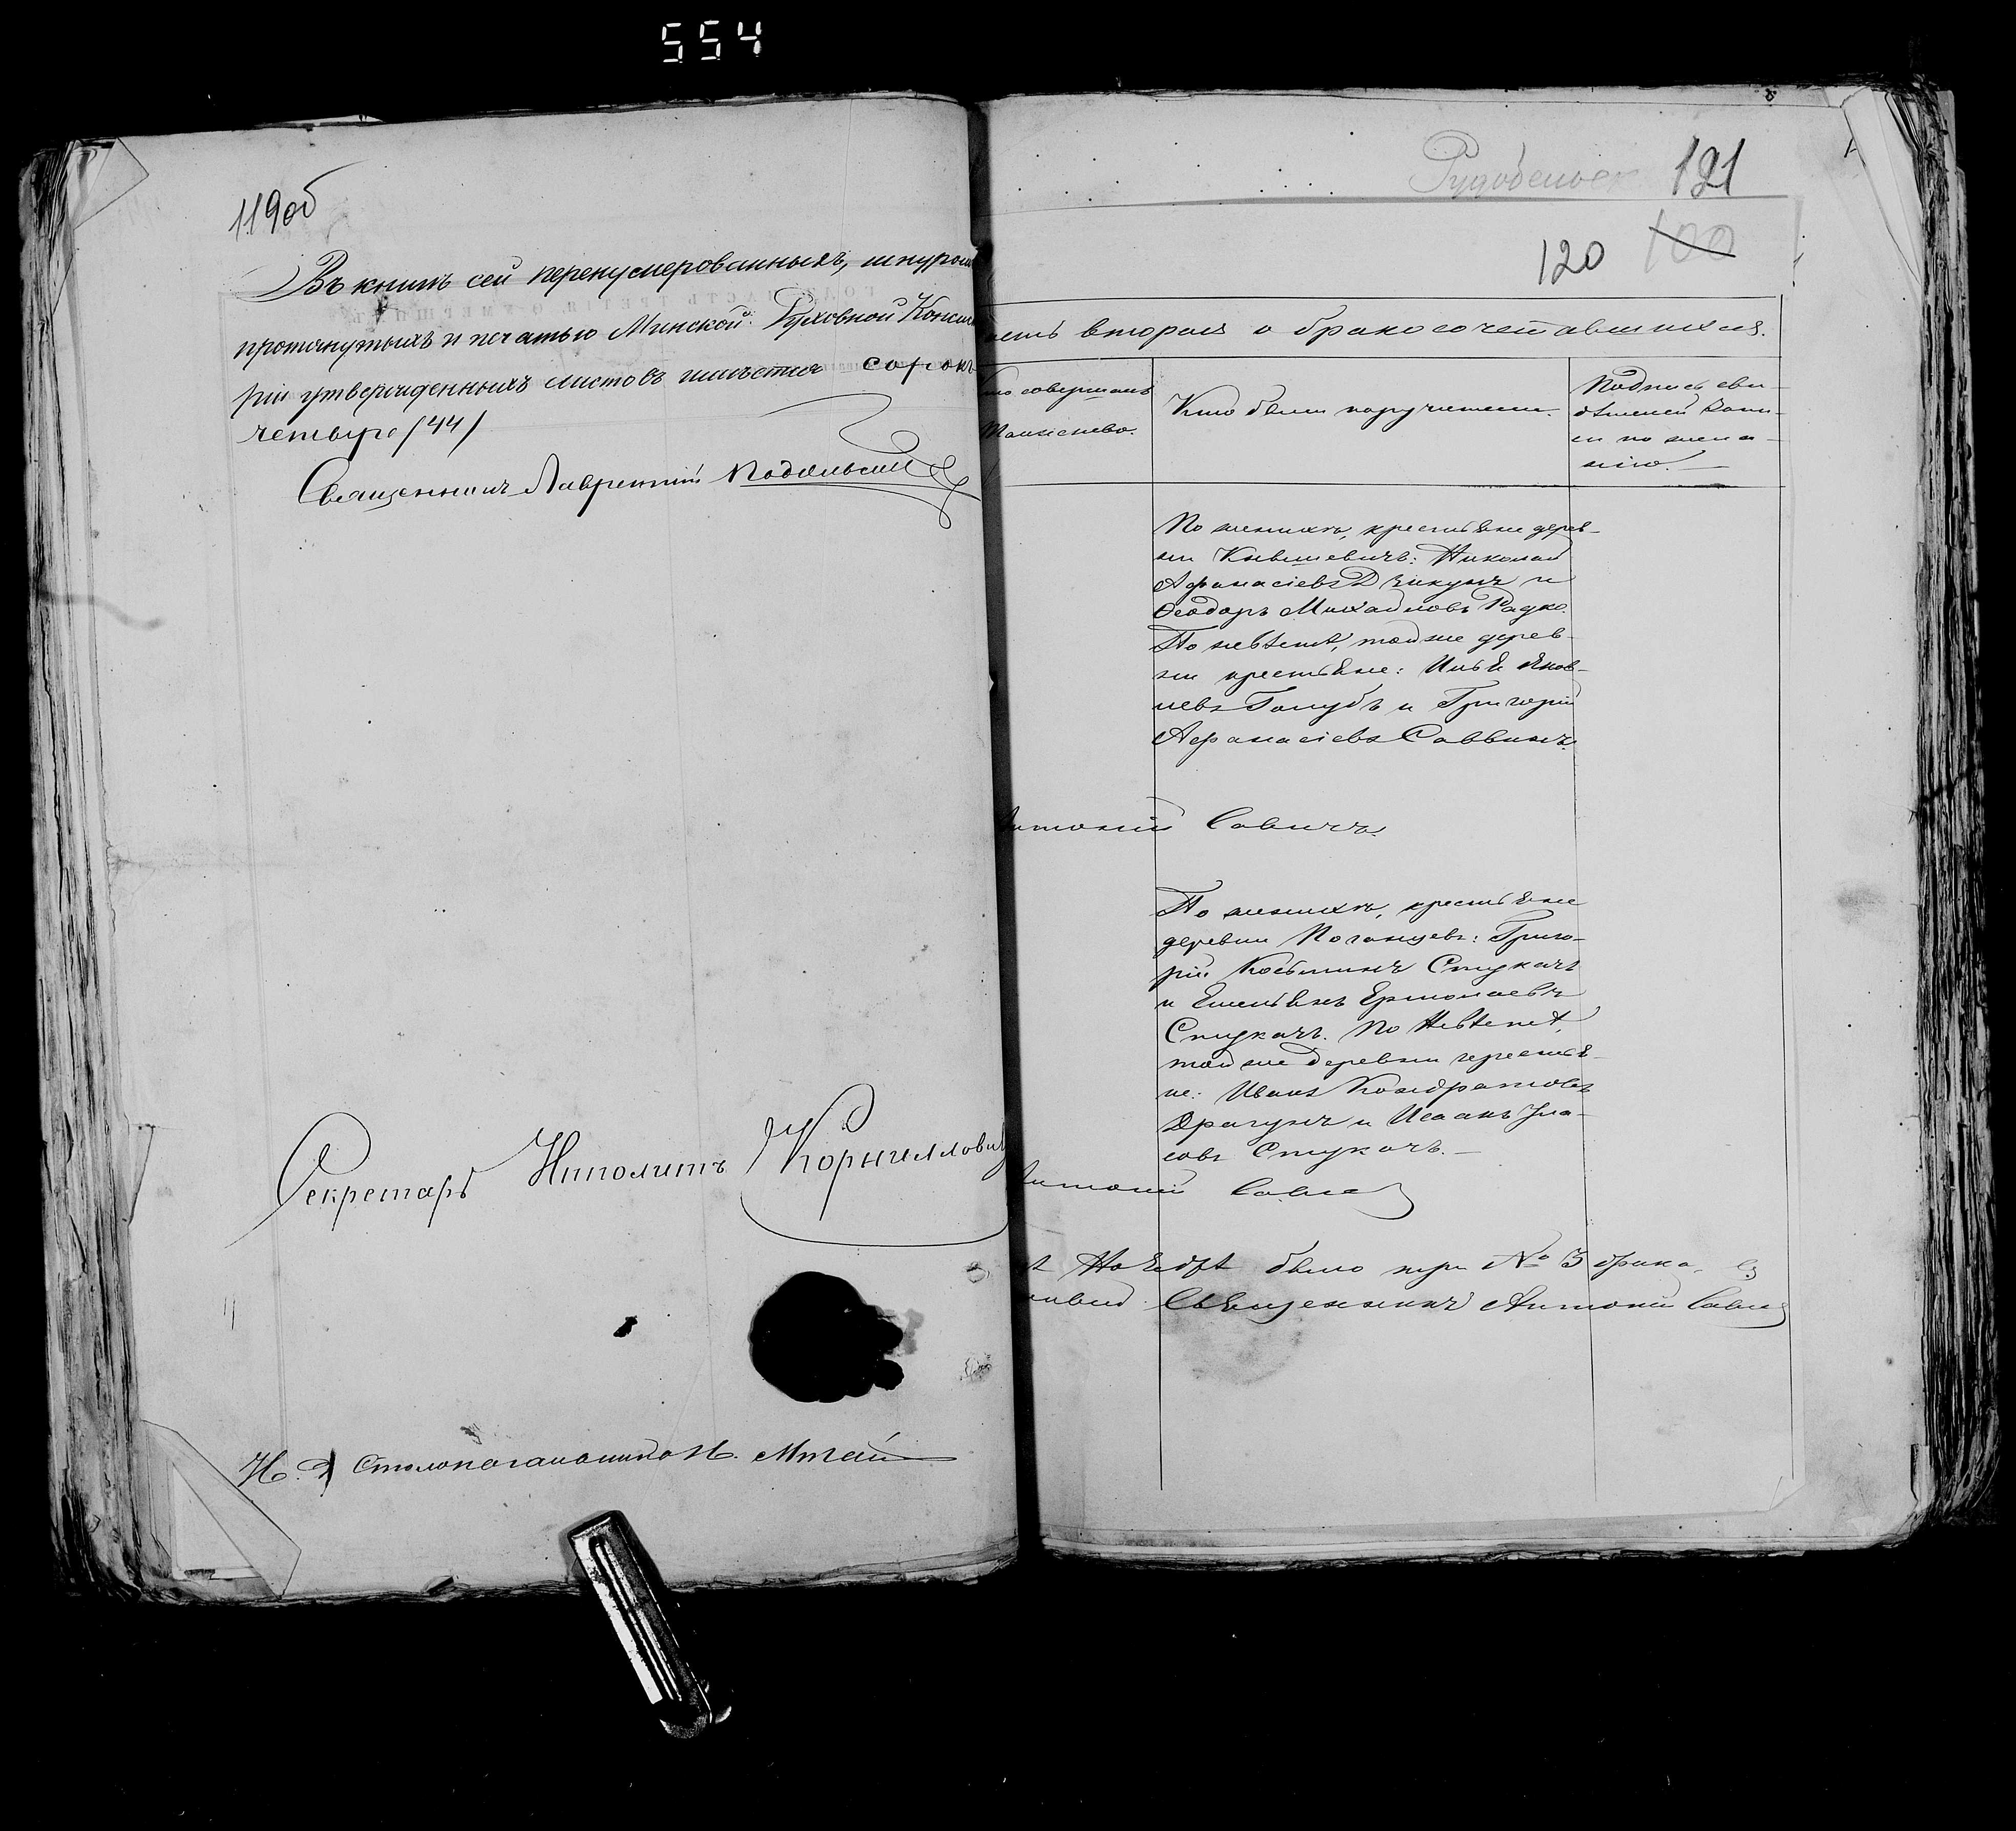 554
119об
Въ книгѣ сей перенумерованныхъ, шнуром
протянутыхъ и печатью Минской Духовной Консис
ріи утвержденныхъ листовъ имѣется сорокъ
четыре /44/
Священникъ Лаврентій Подольский
Секретарь Ипполитъ Корниллович
И. Д Столоначальника Н.
Рудобельск 121
120 100
сть вторая о бракосочетавшихся.
то совершалъ
Таинство.
Кто были поручители.
Подпись сви-
дѣтелей запи-
си по жела-
нію.
По женихѣ, крестьяне дерев-
ни Князевичъ: Николай
Афанасіевъ Дзикунъ и
Ѳеодоръ Михайловъ Радко.
По невѣстѣ, той же дерев-
ни крестьяне: Илья Яков-
левъ Голубъ и Григорій
Афанасіевъ Саввинъ.
нтоній Савичъ.
По женихѣ, крестьяне
деревни Поганцевъ: Григо-
рій Косьминъ Стукачъ
и Емельянъ Ермолаевъ
Стукачъ. По Невѣстѣ,
той же деревни крестья-
не: Иванъ Кондратовъ
Драгунъ и Исаакъ
совъ Стукачъ.
нтоній Савич
ѣ Ноябрѣ было три № 3 брака.
Священникъ Антоній Савич